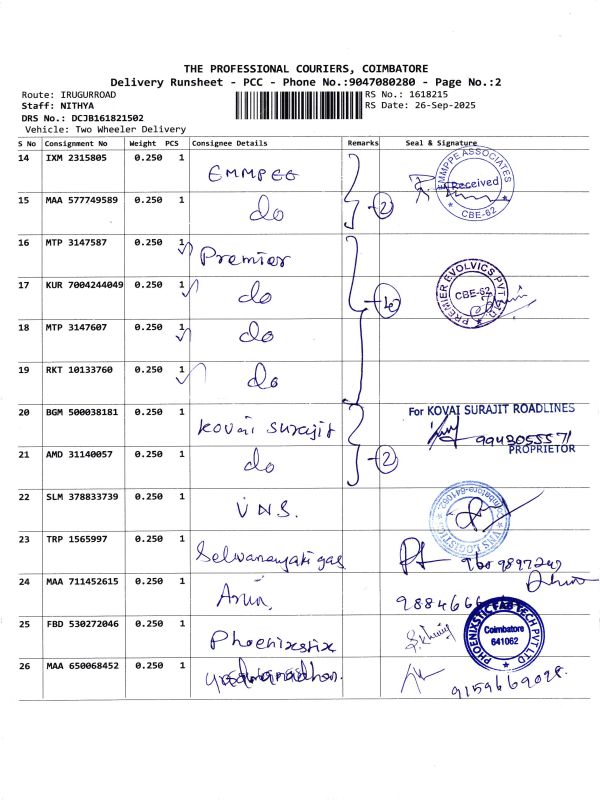 THE PROFESSIONAL COURIERS, COIMBATORE
Delivery Runsheet - PCC - Phone No.:9047080280 - Page No.:2
Route: IRUGURROAD
RS No.: 1618215
Staff: NITHYA
RS Date: 26-Sep-2025
DRS No.: DCJB161821502
Vehicle: Two Wheeler Delivery
S No Consignment No Weight PCS Consignee Details Remarks Seal & Signature
14 IXM 2315805 0.250 1 EMMPEE
EMMPPE ASSOCIATES Received CBE-62
15 MAA 577749589 0.250 1 do 2
16 MTP 3147587 0.250 1 Premier
17 KUR 7004244049 0.250 1 do
PREMIER EVOLVICS PVT LTD CBE-62
18 MTP 3147607 0.250 1 do
19 RKT 10133760 0.250 1 do
20 BGM 500038181 0.250 1 Kovai Surajit
For KOVAI SURAJIT ROADLINES
PROPRIETOR
21 AMD 31140057 0.250 1 do 2
22 SLM 378833739 0.250 1 VNS.
VNS LOGISTIC Coimbatore-641062
23 TRP 1565997 0.250 1 gas
24 MAA 711452615 0.250 1 Arun.
988466
25 FBD 530272046 0.250 1 Phoenixstix
PHOENIXSTIC FAB TECH PVT LTD Coimbatore 641062
26 MAA 650068452 0.250 1
9159669028.